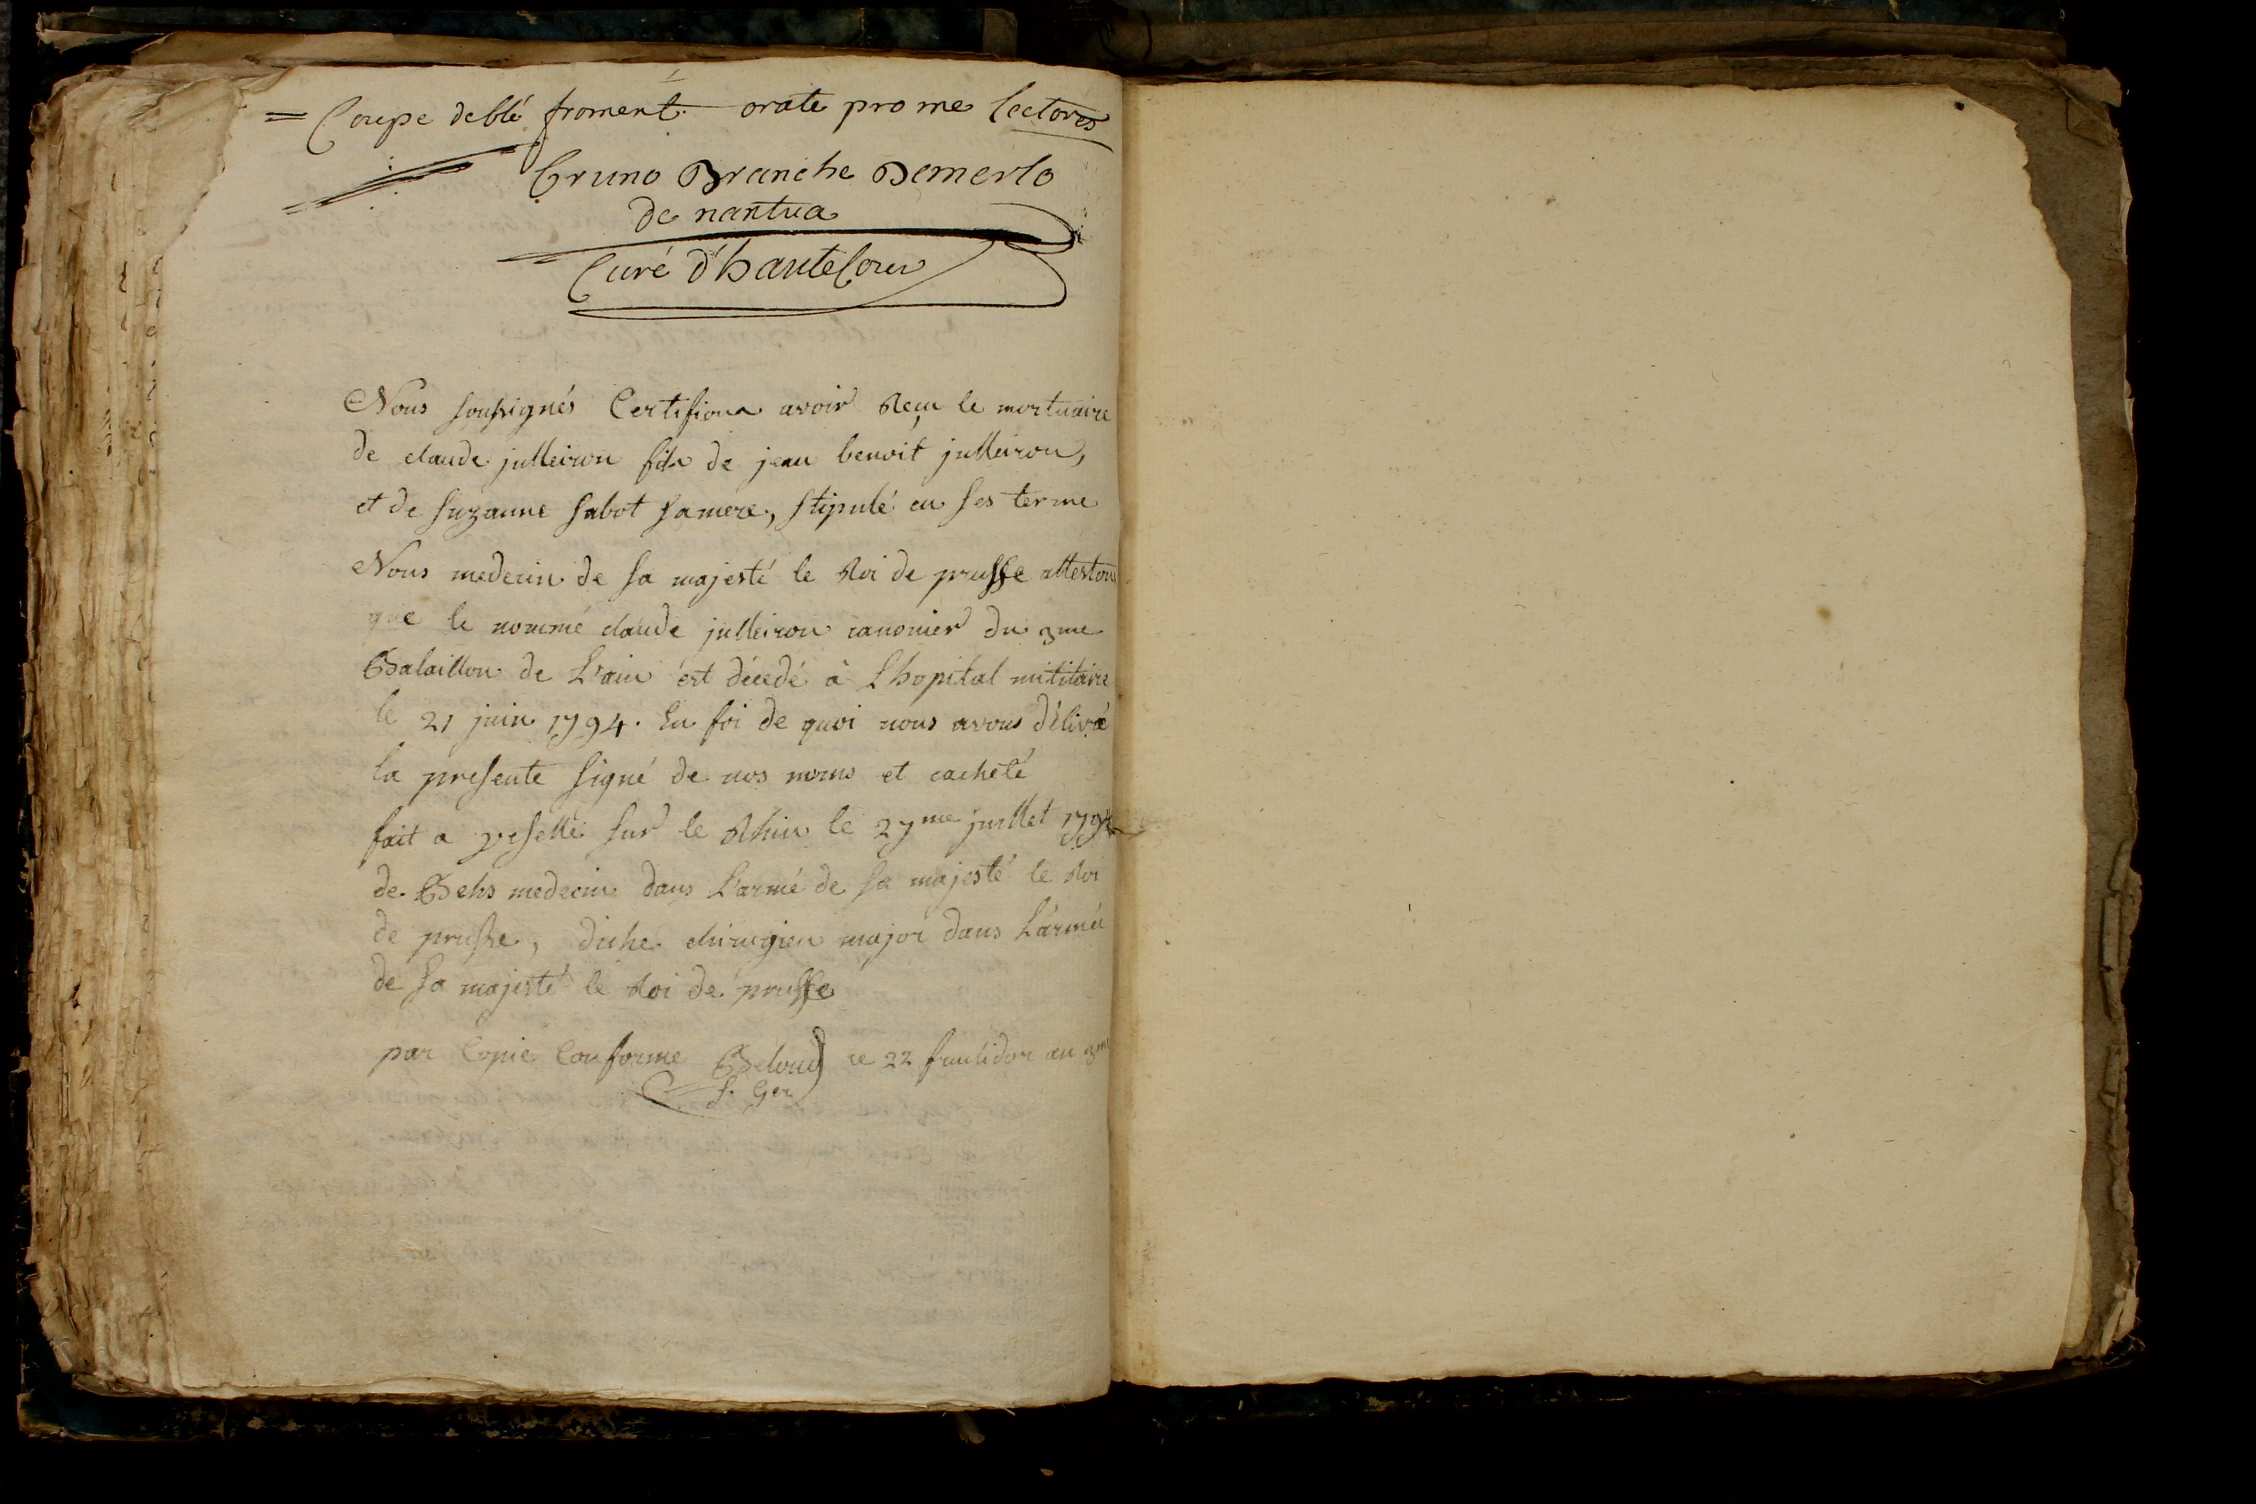 = Coupe deblé froment. orate pro me lectores
Bruno Branche Demerlo
de nantua
Curé d'hauteCour
Nous soussignés Certifions avoir Reçu le mortuaire
de claude julleiron fils de jean benoit julleiron,
et de suzanne sabot sa mere, stipulé en ses terme
Nous medecin de sa majesté le Roi de prusse attestons
que le nommé claude julleiron canonier du 3me
Bataillon de L'ain est décedé à L'hopital militaire
le 21 juin 1794. En foi de quoi nous avons délivré
la presente signé de nos noms et cacheté
fait a veselle sur le Rhin le 27me juillet 1794
de Behs medecin dans L'armé de sa majesté le Roi
de prusse, diche chirurgien major dans L'armée
de sa majesté le Roi de prusse
par Copie Conforme ce 22 fructidor an 3me